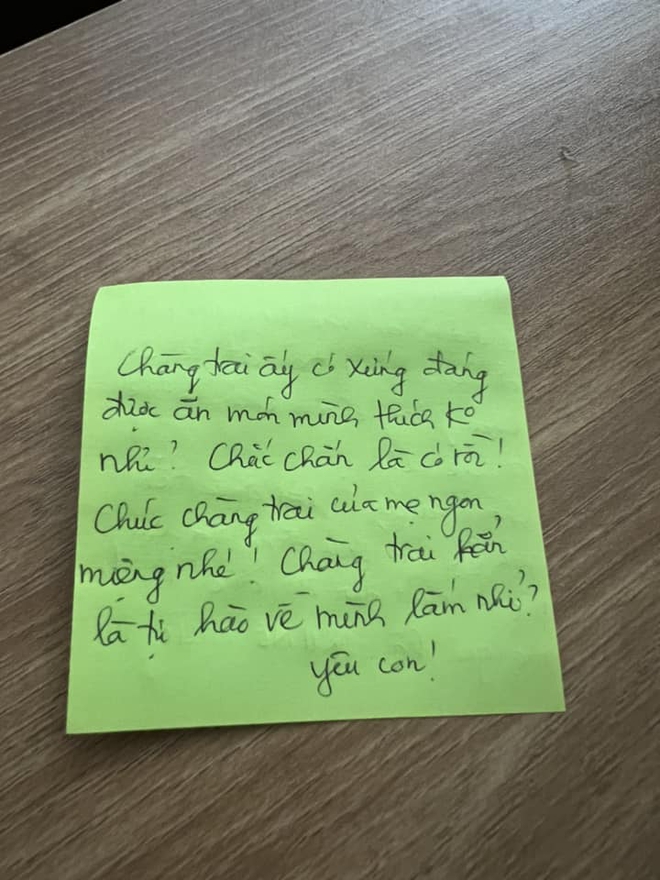 Chàng trai ấy có xứng đáng
được ăn món mình thích ko
nhỉ? Chắc chắn là có rồi!
Chúc chàng trai của mẹ ngon
miệng nhé! Chàng trai hẳn
là tự hào về mình lắm nhỉ?
yêu con!